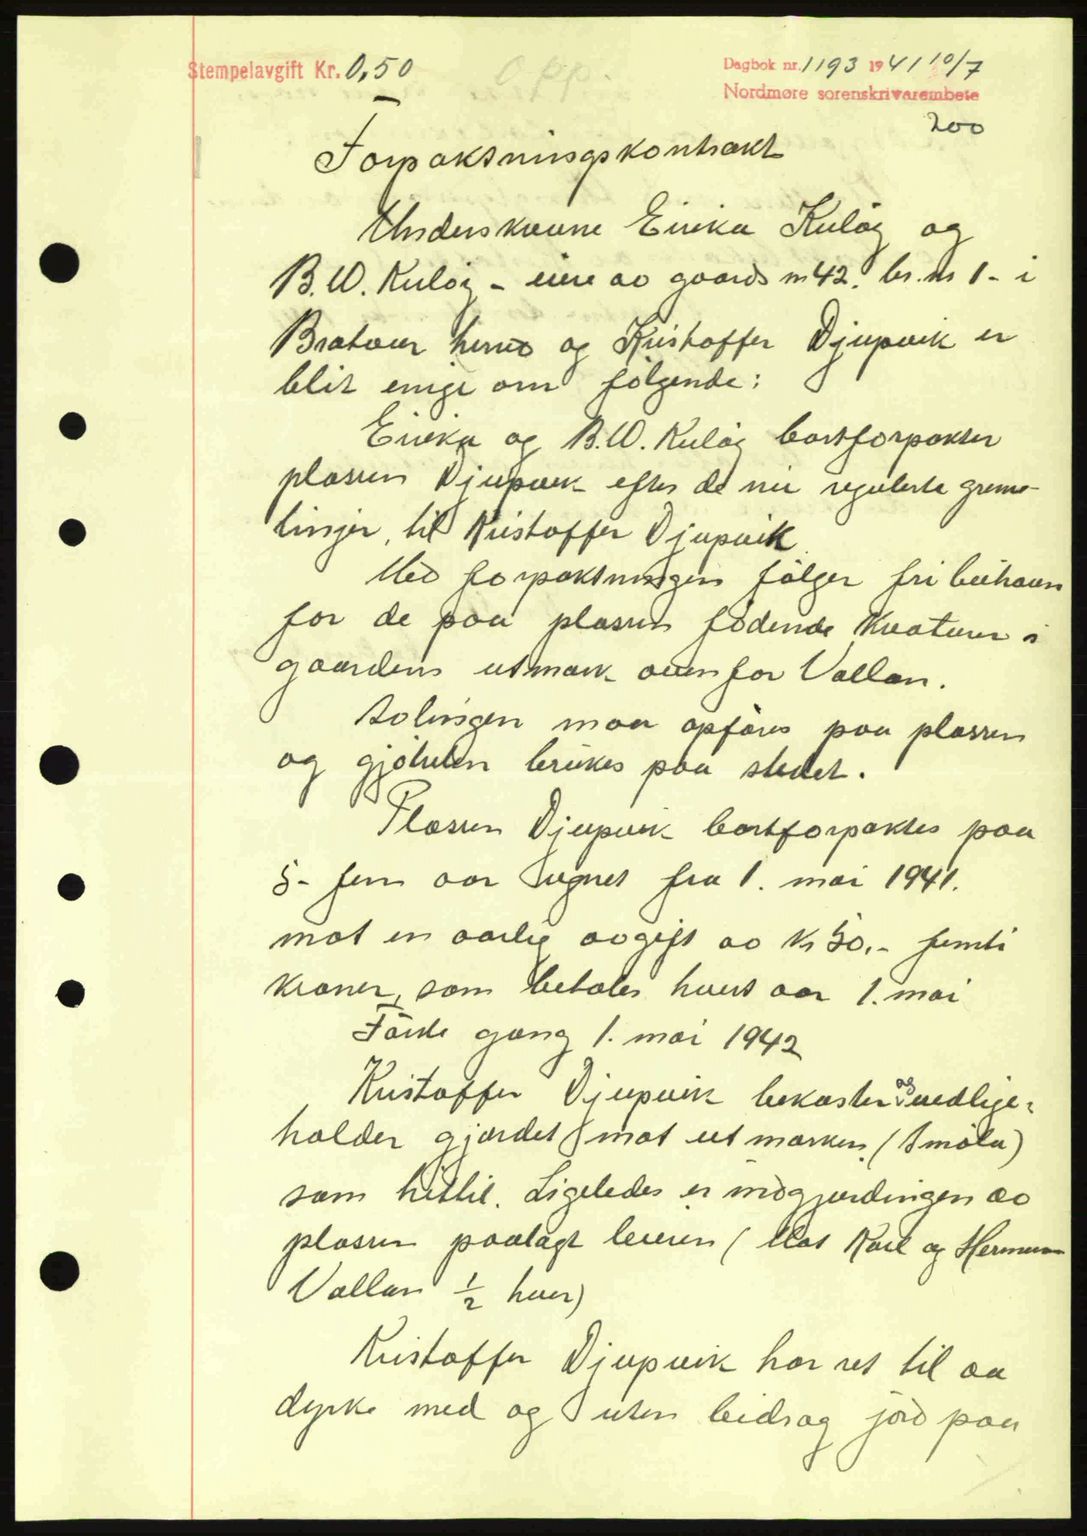 Stempelavgift Kr. 0,50
Dagbok nr. 1193 1941 10/7
Nordmøre sorenskrivarembete
200
Forpaktningskontrakt
Underskrevne Eirika Kuløy og
B.W. Kuløy - eiere av gaards nr 42. br. nr 1 - i
Bratvær herred og Kristoffer Djupvik er
blit enige om følgende:
Eirika og B.W. Kuløy bortforpakter
plassen Djupvik efter de nu regulerte grense-
linjer, til Kristoffer Djupvik
Med forpaktningen følger fri beitehavn
for de paa plassen fødende kreaturer i
gaardens utmark ovenfor Vallan.
Avlingen maa opføres paa plassen
og gjødselen brukes paa stedet.
Plassen Djupvik bortforpaktes paa
5- fem aar regnet fra 1. mai 1941.
mot en aarlig avgift av kr 50,- femti
kroner, som betales hvert aar 1. mai
Første gang 1. mai 1942
Kristoffer Djupvik bekoster og vedlige-
holder gjærdet mot utmarken (Smøla)
som hittil. Ligeledes er indgjærdingen av
plassen paalagt leieren (Mot Karl og Herman
Vallan 1/2 hver)
Kristoffer Djupvik har ret til aa
dyrke med og uten bidrag jord paa